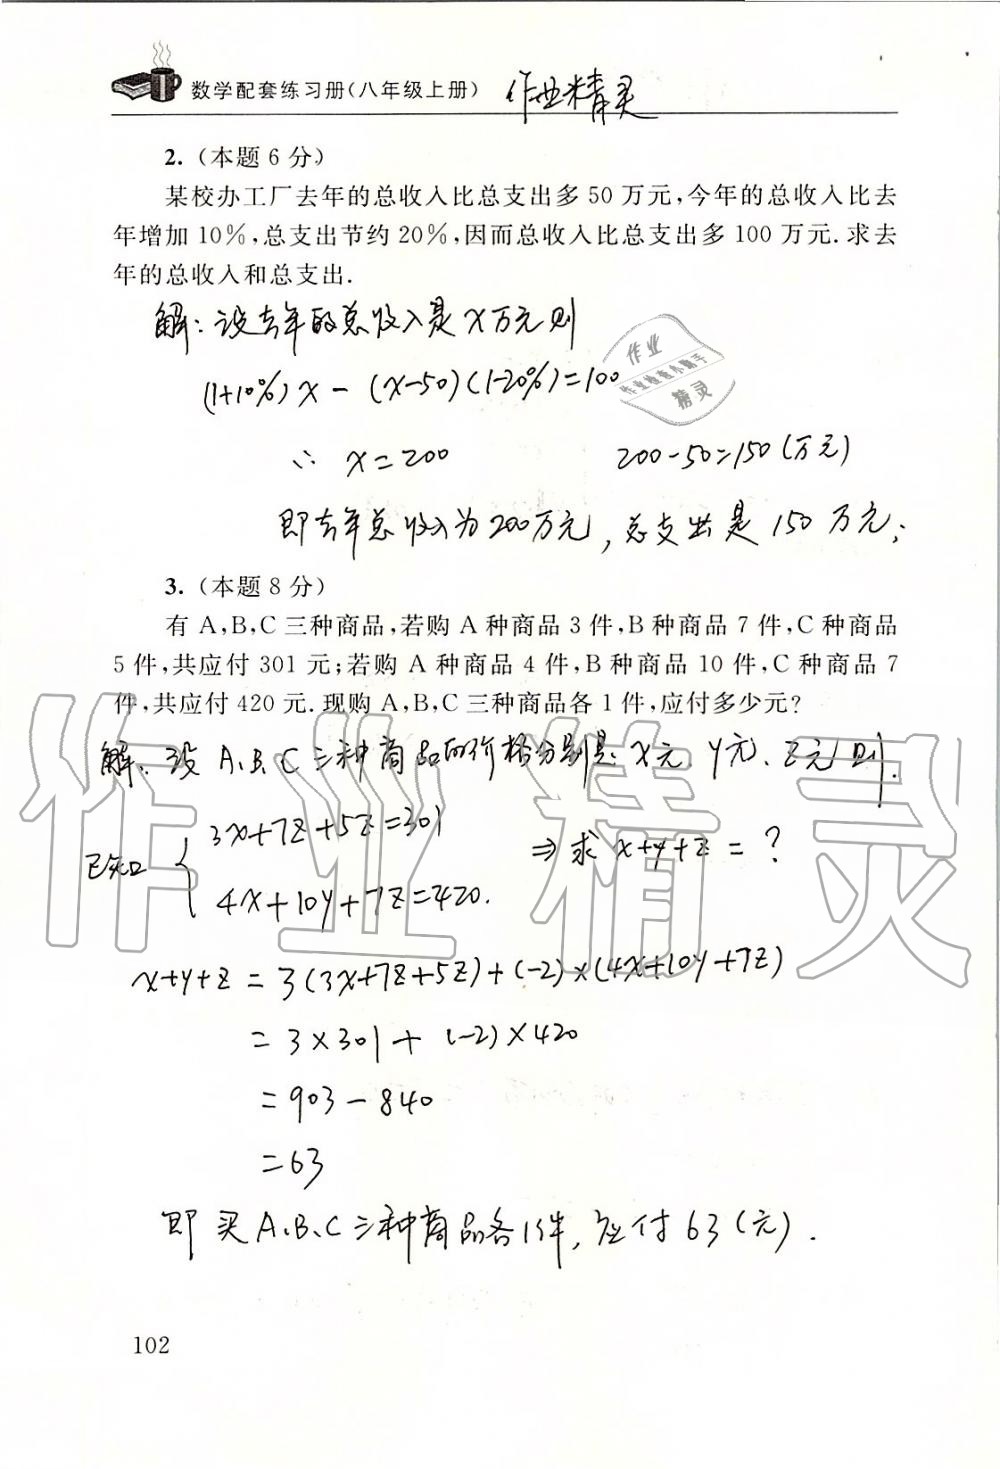 数学配套练习册(八年级上册) 作业精灵
2.(本题6分)
某校办工厂去年的总收入比总支出多50万元,今年的总收入比去
年增加10%,总支出节约20%,因而总收入比总支出多100万元.求去
年的总收入和总支出.
解:设去年的总收入是x万元则
(1+10%)x-(x-50)(1-20%)=100
作业
作业检查小助手
精灵
∴ x=200 200-50=150(万元)
即去年总收入为200万元,总支出是150万元;
3.(本题8分)
有A,B,C三种商品,若购A种商品3件,B种商品7件,C种商品
5件,共应付301元;若购A种商品4件,B种商品10件,C种商品7
件,共应付420元.现购A,B,C三种商品各1件,应付多少元?
解:设A、B、C三种商品的价格分别是:x元、y元、z元则.
已知 { 3x+7z+5z=301 ⇒求x+y+z=?
4x+10y+7z=420.
x+y+z=3(3x+7z+5z)+(-2)×(4x+10y+7z)
=3×301+(-2)×420
=903-840
=63
即买A、B、C三种商品各1件,应付63(元).
102
作业精灵